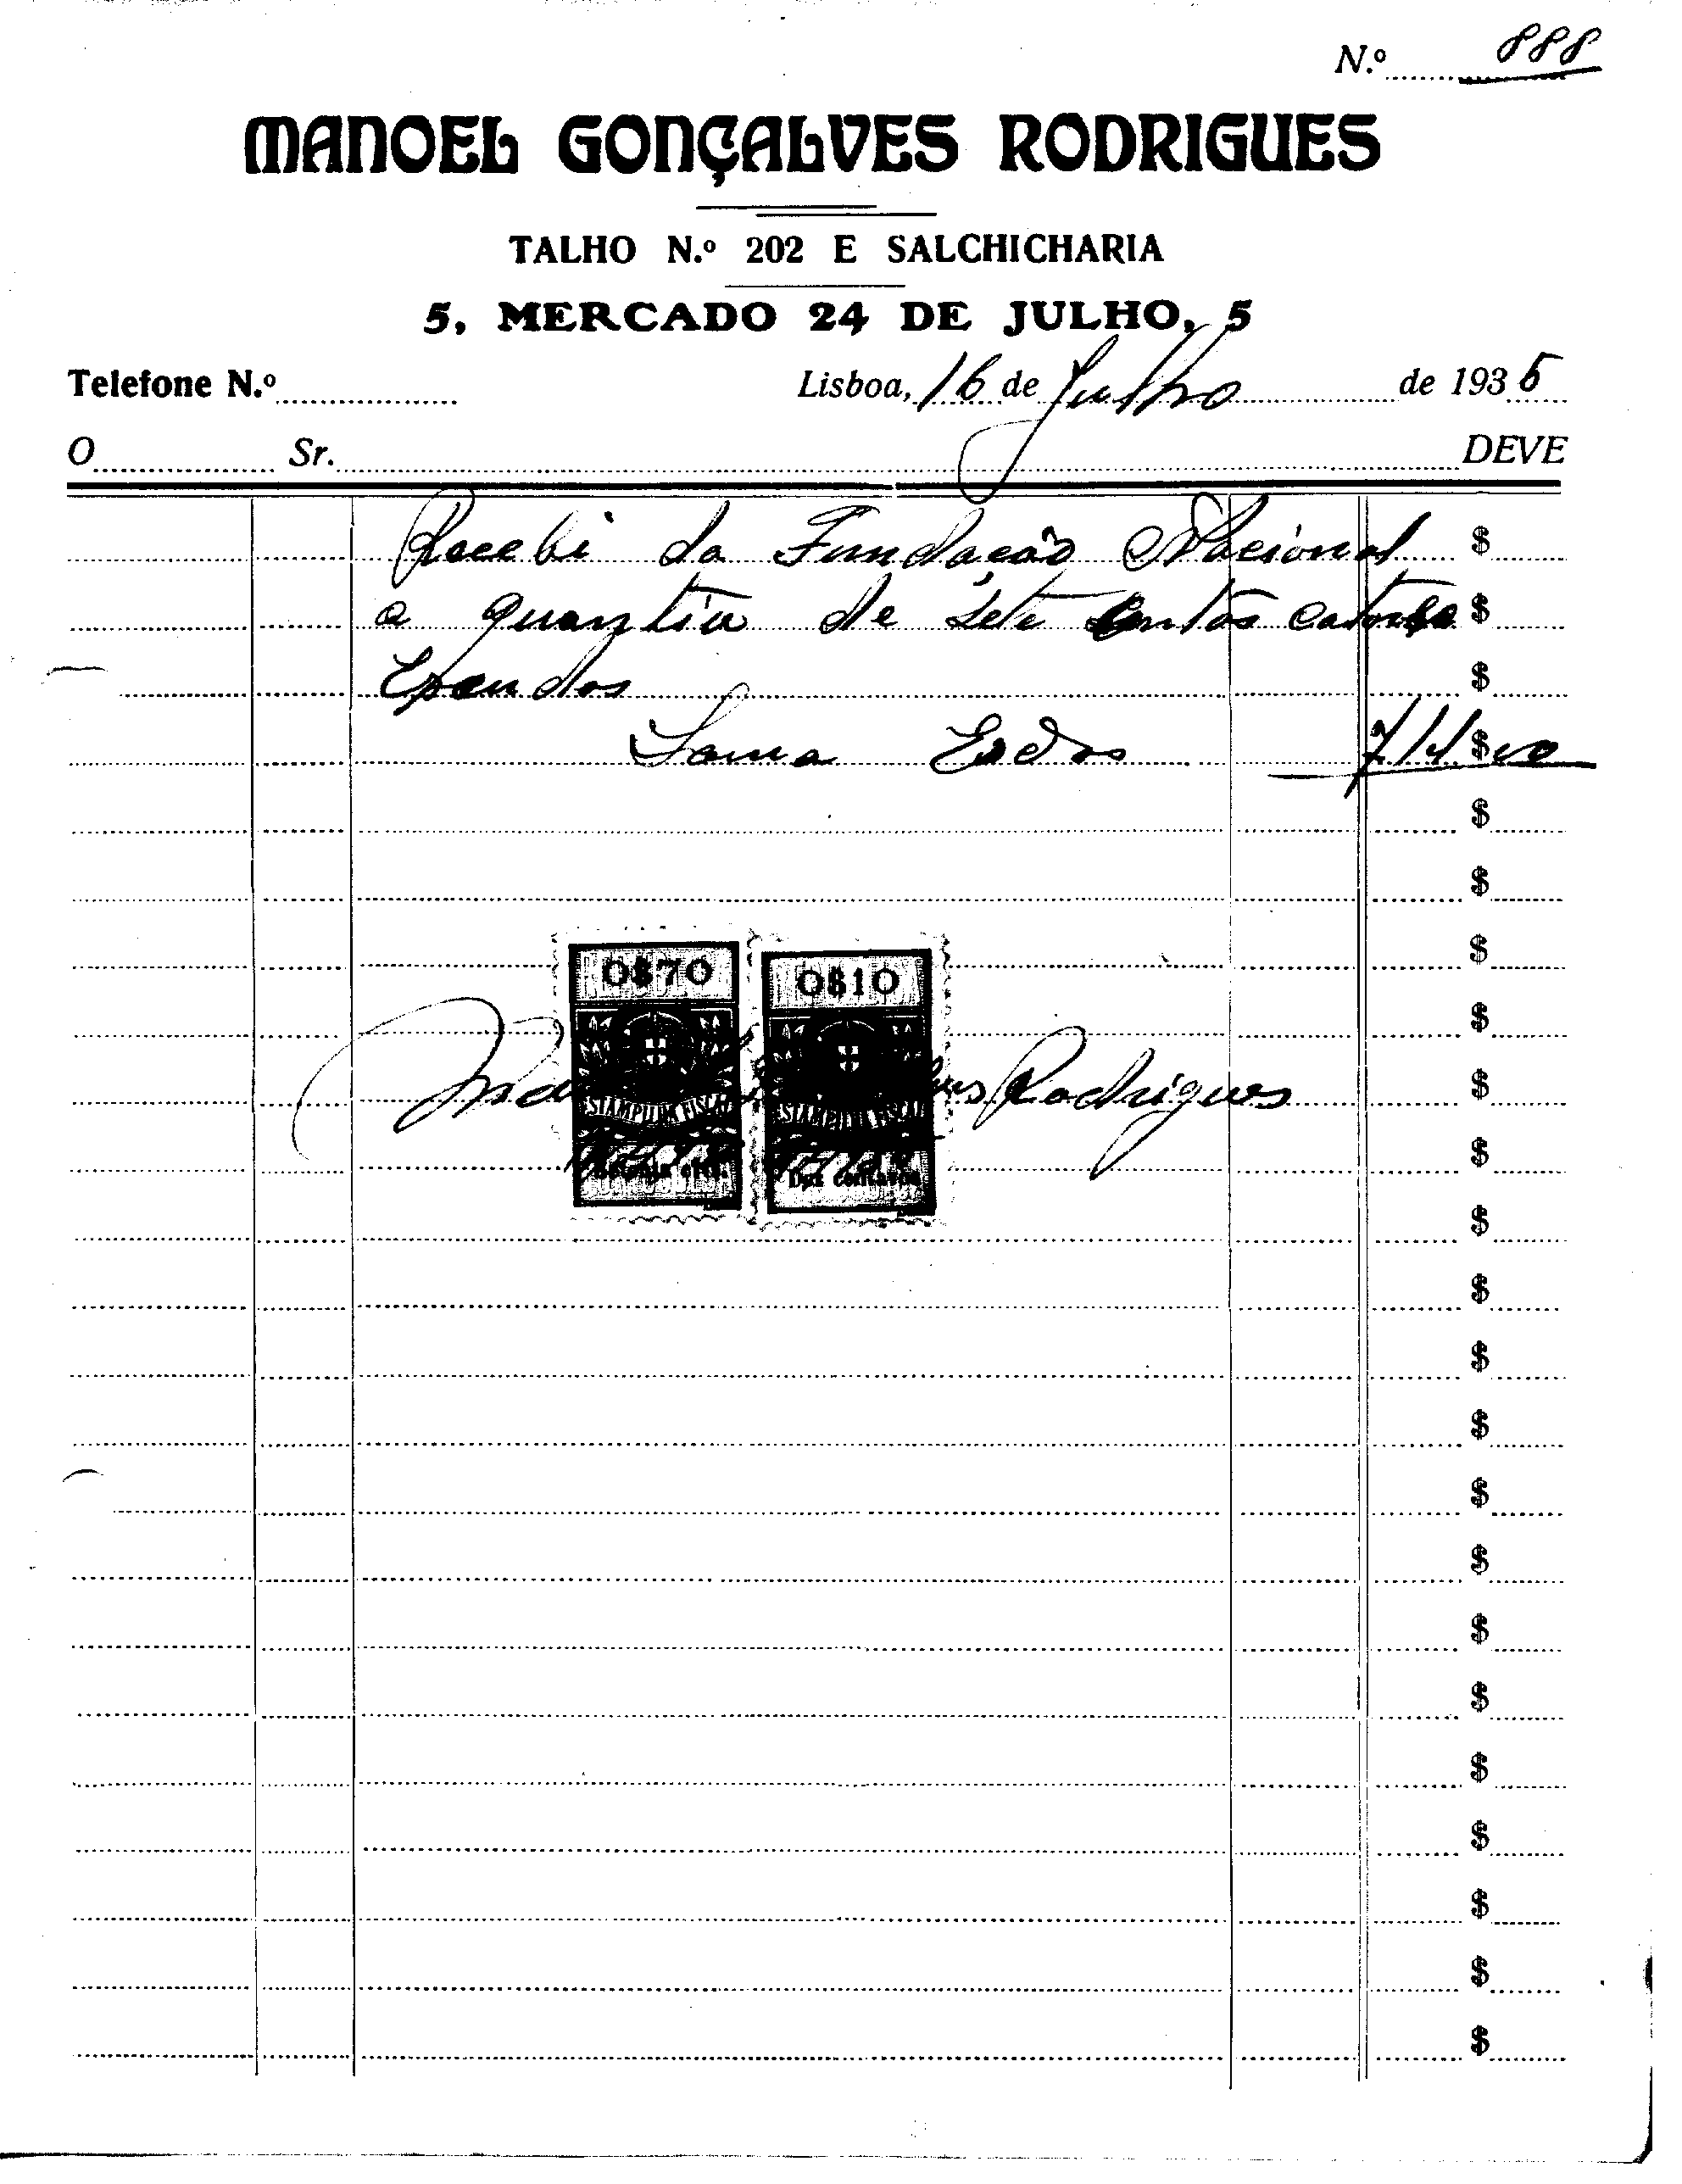 N.º 888
MANOEL GONÇALVES RODRIGUES
TALHO N.º 202 E SALCHICHARIA
5, MERCADO 24 DE JULHO, 5
Telefone N.º Lisboa, 16 de Julho de 1935
O Sr. DEVE
Recebi da Fundação Nacional $
a quantia de sete centos catorse $
Escudos $
Soma Esdos 714$00
$
$
$
0$70 0$10
$
Rodrigues $
ESTAMPILHA FISCAL ESTAMPILHA FISCAL
$
Dez centavos
$
$
$
$
$
$
$
$
$
$
$
$
$